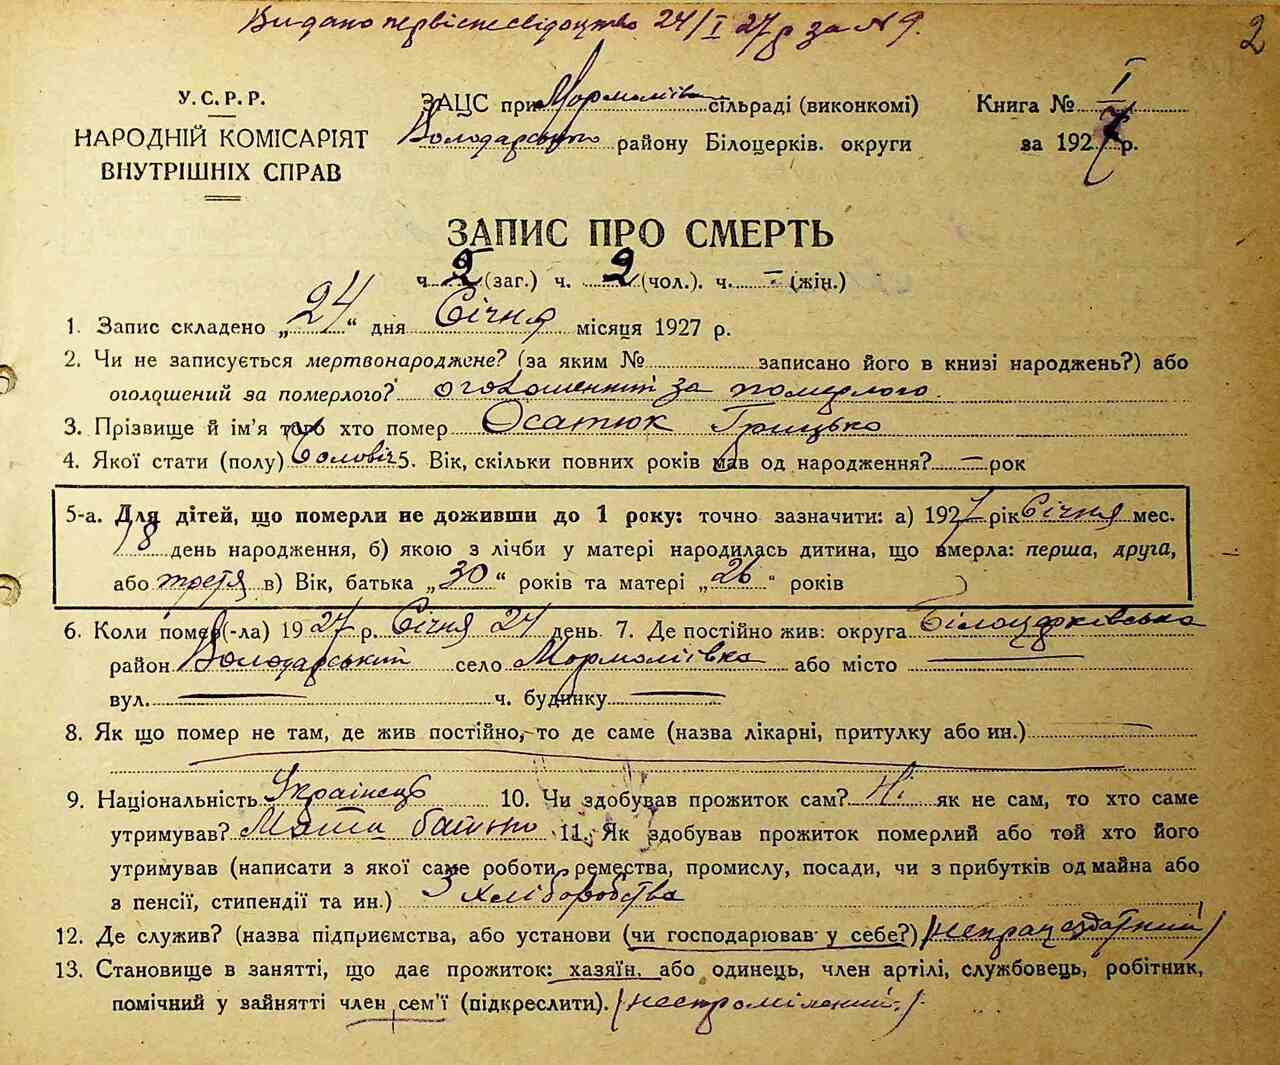 Видано первісне свідоцтво 24/I 27 р за N 9.
2
У.С.Р.Р.
НАРОДНІЙ КОМІСАРІЯТ
ВНУТРІШНІХ СПРАВ
ЗАЦС при Мормоліївс сільраді (виконкомі)
Володарського району Білоцерків. округи
Книга № I
за 1927 р.
ЗАПИС ПРО СМЕРТЬ
ч. 2 (заг.) ч. 2 (чол.). ч. – (жін.)
1. Запис складено „24“ дня Січня місяця 1927 р.
2. Чи не записується мертвонароджене? (за яким № записано його в книзі народжень?) або
оголошений за померлого? оголошенний за померлого.
3. Прізвище й ім'я того хто помер Осатюк Грицько
4. Якої стати (полу) Чоловіч 5. Вік, скільки повних років мав од народження? – рок
5-а. Для дітей, що померли не доживши до 1 року: точно зазначити: а) 1927 рік Січня мес.
18 день народження, б) якою з лічби у матері народилась дитина, що вмерла: перша, друга,
або третя в) Вік, батька „30“ років та матері „26“ років
6. Коли помер(-ла) 1927 р. Січня 24 день 7. Де постійно жив: округа Білоцерківська
район Володарський село Мормоліївка або місто —
вул. — ч. будинку —
8. Як що помер не там, де жив постійно, то де саме (назва лікарні, притулку або ин.) —
9. Національність Українець 10. Чи здобував прожиток сам? Ні як не сам, то хто саме
утримував? батько 11. Як здобував прожиток померлий або той хто його
утримував (написати з якої саме роботи, ремества, промислу, посади, чи з прибутків од майна або
з пенсії, стипендії та ин.) З хліборобства
12. Де служив? (назва підприємства, або установи (чи господарював у себе?) /непрацездатний/
13. Становище в занятті, що дає прожиток: хазяїн, або одинець, член артілі, службовець, робітник,
помічний у зайнятті член сем'ї (підкреслити).